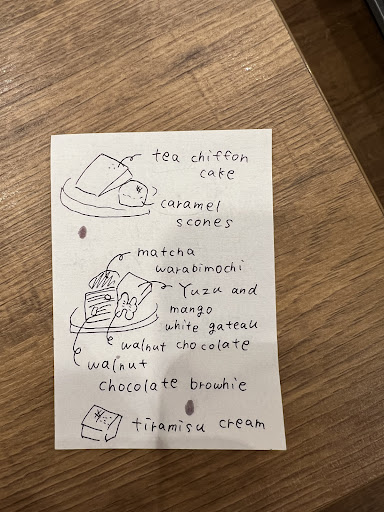 tea chiffon
cake
caramel
scones
matcha
warabimochi
Yuzu and
mango
white gateau
walnut chocolate
walnut
chocolate brownie
tiramisu cream